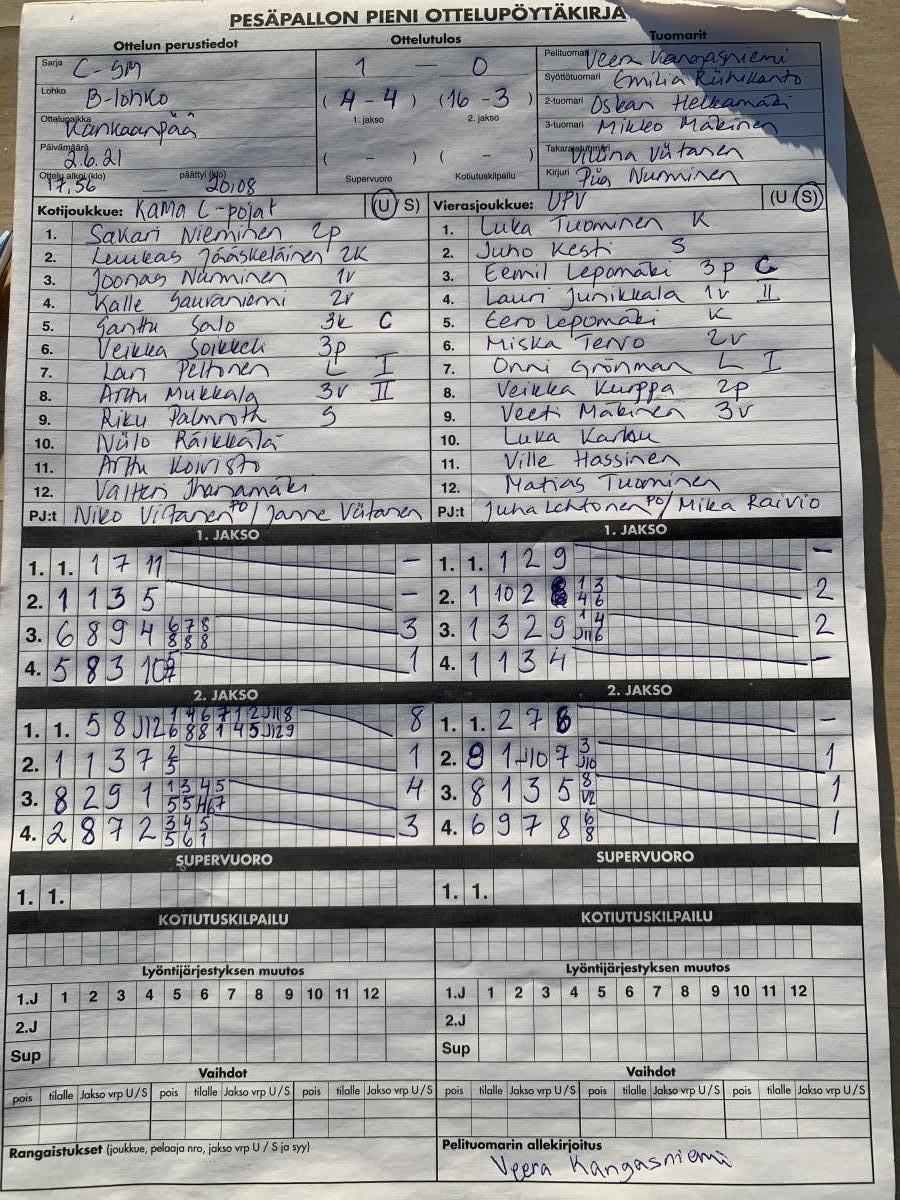 PESÄPALLON PIENI OTTELUPÖYTÄKIRJA
Ottelun perustiedot
Sarja C-SM
Lohko B-lohko
Ottelupaikka Kankaanpää
Päivämäärä 2.6.21
Ottelu alkoi (klo) 17,56 — päättyi (klo) 20,08
Ottelutulos
1 — 0
(4 - 4) (16 - 3)
1. jakso 2. jakso
( - ) ( - )
Supervuoro Kotiutuskilpailu
Tuomarit
Pelituomari Veera Kangasniemi
Syöttötuomari Emilia
2-tuomari Oskari Helkamäki
3-tuomari Mikko Mäkinen
Takarajatuomari Vilina Viitanen
Kirjuri Piia Nurminen
Kotijoukkue: KaMa C-pojat (U S)
1. Sakari Nieminen 2p
2. Luukas Jääskeläinen 2K
3. Joonas Nurminen 1v
4. Kalle Sauraniemi 2v
5. Santtu Salo 3k C
6. Veikka Soikkeli 3p
7. Lari Peltonen L I
8. Arttu Mukkala 3v II
9. Riku Palmroth S
10. Niilo Räikkälä
11. Arttu Koivisto
12. Valtteri Ihanamäki
PJ:t Niko Viitanen PO / Janne Viitanen
Vierasjoukkue: UPV (U S)
1. Luka Tuominen K
2. Juho Kesti S
3. Eemil Lepomäki 3p C
4. Lauri Junikkala 1v II
5. Eero Lepomäki K
6. Miska Tervo 2v
7. Onni Grönman L I
8. Veikka Kurppa 2p
9. Veeti Mäkinen 3v
10. Luka Karhu
11. Ville Hassinen
12. Matias Tuominen
PJ:t Juha Lehtonen PO / Mika Raivio
1. JAKSO
1. 1. 1 7 11 —
2. 1 1 3 5 —
3. 6 8 9 4 6 7 8 3
8 8 8
4. 5 8 3 10 1
1. JAKSO
1. 1. 1 2 9 —
2. 1 10 2 1 3 2
4 6
3. 1 3 2 9 1 4 2
J11 6
4. 1 1 3 4 —
2. JAKSO
1. 1. 5 8 J12 1 4 6 7 1 2 J11 8 8
6 8 8 1 4 5 J12 9
2. 1 1 3 7 2 1
5
3. 8 2 9 1 1 3 4 5 4
5 5
4. 2 8 7 2 3 4 5 3
5 6 1
2. JAKSO
1. 1. 2 7 8 —
2. 9 1 J10 7 3 1
J10
3. 8 1 3 5 8 1
V2
4. 6 9 7 8 6 1
8
SUPERVUORO
1. 1.
SUPERVUORO
1. 1.
KOTIUTUSKILPAILU
KOTIUTUSKILPAILU
Lyöntijärjestyksen muutos
1.J 1 2 3 4 5 6 7 8 9 10 11 12
2.J
Sup
Lyöntijärjestyksen muutos
1.J 1 2 3 4 5 6 7 8 9 10 11 12
2.J
Sup
Vaihdot
pois tilalle Jakso vrp U / S pois tilalle Jakso vrp U / S pois tilalle Jakso vrp U / S
Vaihdot
pois tilalle Jakso vrp U / S pois tilalle Jakso vrp U / S pois tilalle Jakso vrp U / S
Rangaistukset (joukkue, pelaaja nro, jakso vrp U / S ja syy)
Pelituomarin allekirjoitus
Veera Kangasniemi